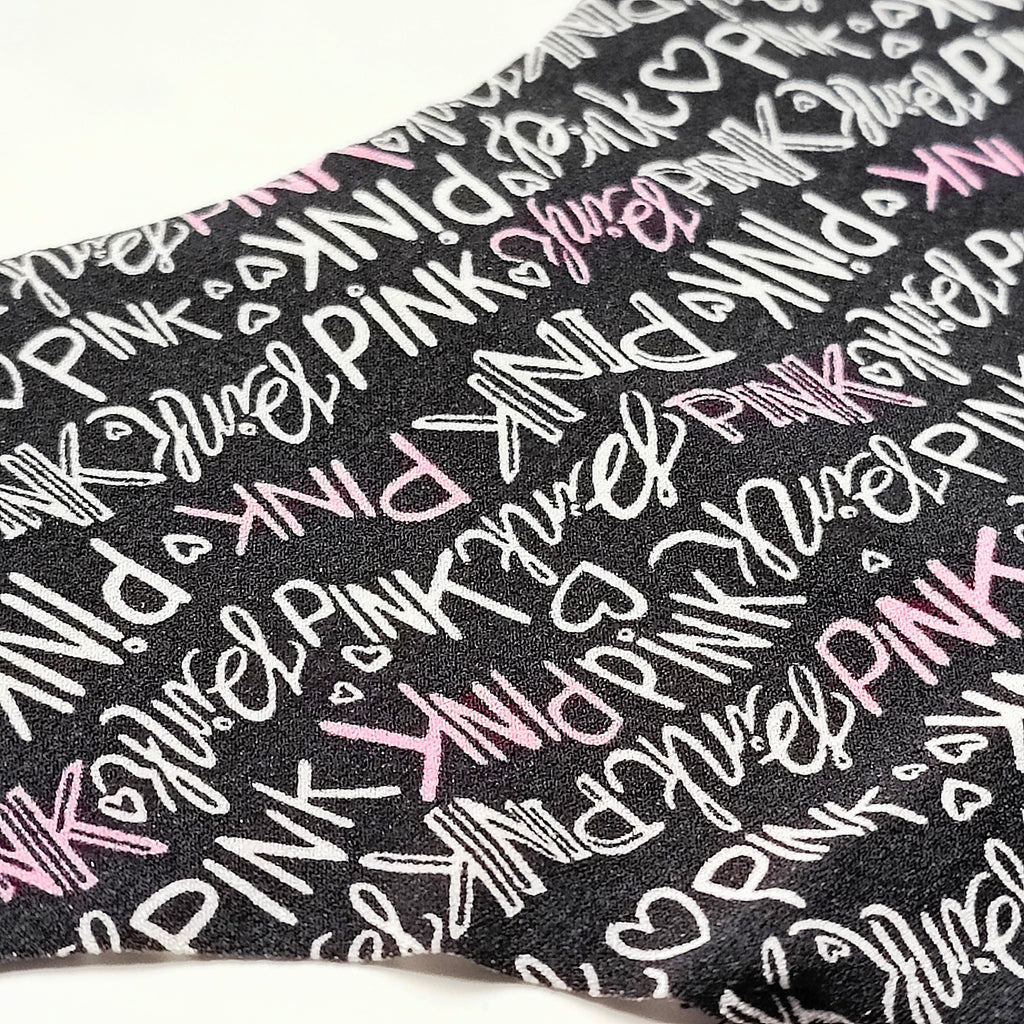 PINK
pink PINK
PINK pink PINK
pink PiNK pink PINK PiNK
PINK PiNK PINK pink
pink PINK PINK pink
PINK PINK pink pink PINK
PiNK pink PINK PiNK PiNK
PINK pink PINK pink
PINK PINK PINK
pink